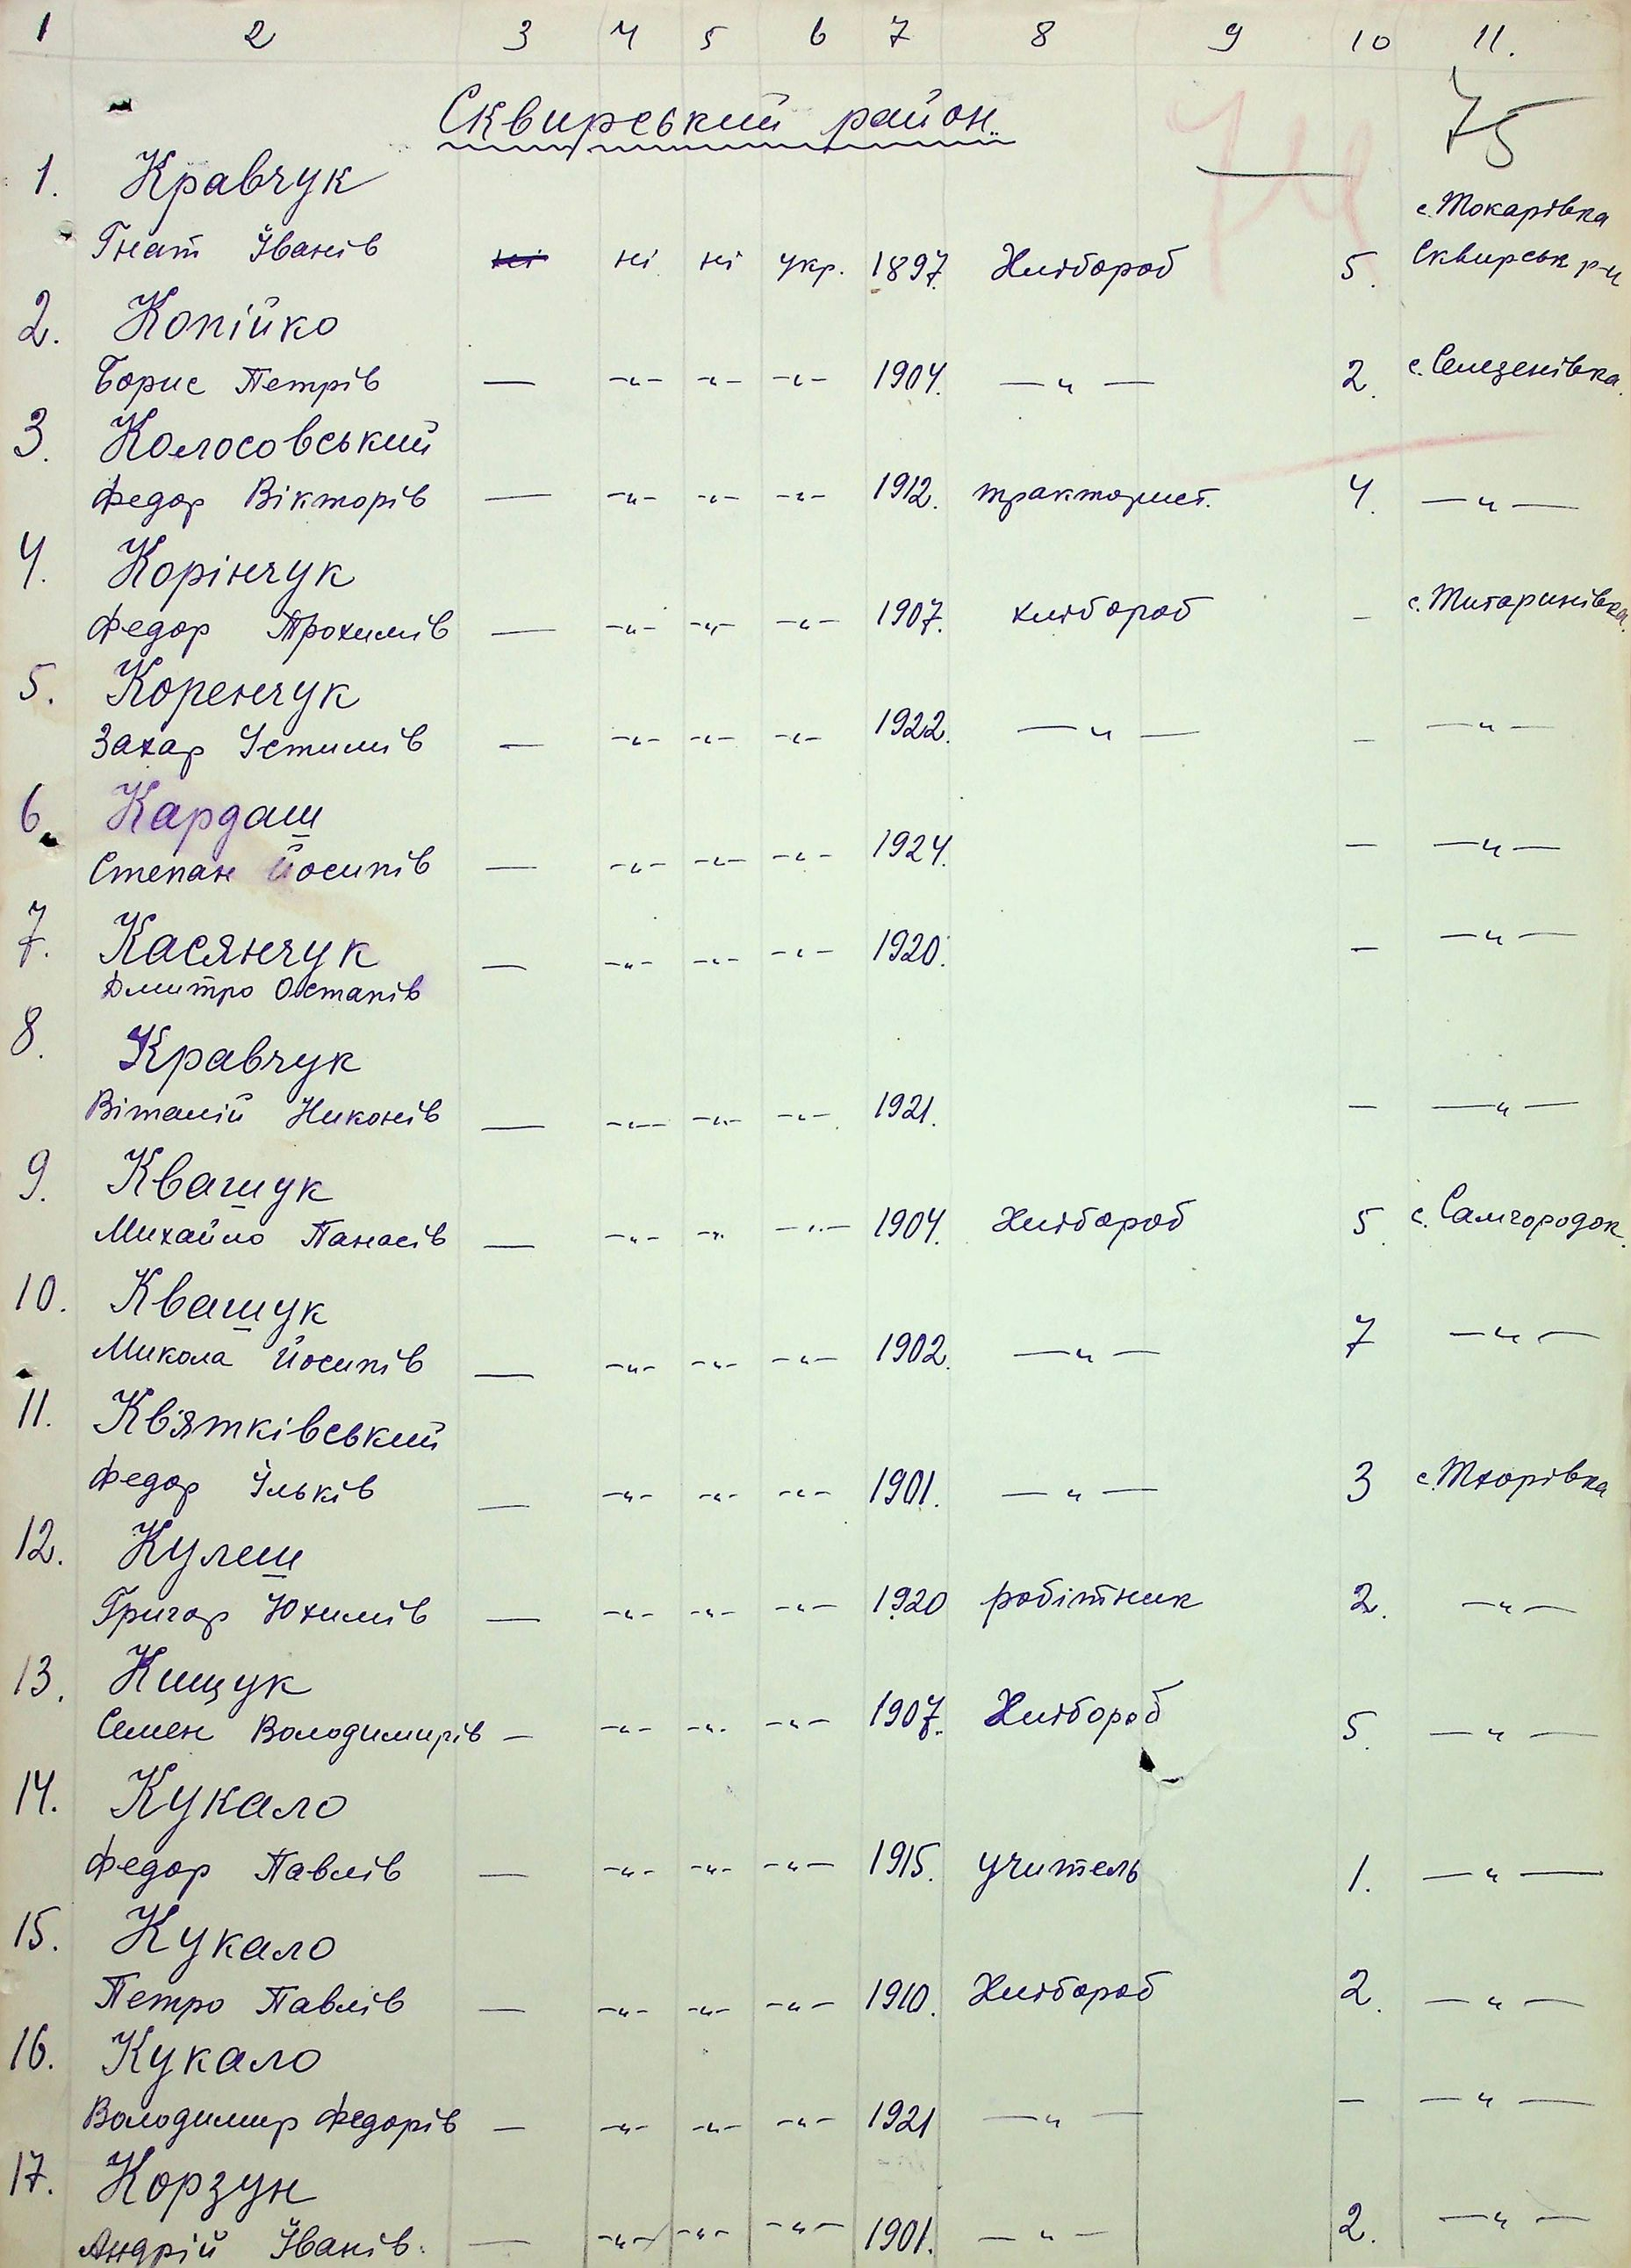 1 2 3 4 5 6 7 8 9 10 11.
Сквирський район.
75
1. Кравчук
с. Токарівка
Гнат Іванів ні ні ні укр. 1897. Хлібороб 5. Сквирськ р-н
2. Копійко
Борис Петрів — -"- -"- -"- 1904. — " — 2. с. Селезенівка.
3. Колосовський
Федор Вікторів — -"- -"- -"- 1912. тракторист. 4. — " —
4. Корінчук
Федор Трохимів — -"- -"- -"- 1907. хлібороб – с. Титаринівка.
5. Коренчук
Захар Устимів — -"- -"- -"- 1922. — " — – — " —
6. Кардаш
Степан Йосипів — -"- -"- -"- 1924. – — " —
7. Касянчук — -"- -"- -"- 1920. – — " —
Дмитро Остапів
8. Кравчук
Віталій Никонів — -"- -"- -"- 1921. – — " —
9. Квашук
Михайло Панасів — -"- -"- -"- 1904. Хлібороб 5. с. Самгородок.
10. Квашук
Микола Йосипів — -"- -"- -"- 1902. — " — 7 — " —
11. Квятківський
Федор Ільків — -"- -"- -"- 1901. — " — 3 с. Тхорівка
12. Кулеш
Григор Юхимів — -"- -"- -"- 1920 робітник 2. — " —
13. Кищук
Семен Володимирів — -"- -"- -"- 1907. Хлібороб 5. — " —
14. Кукало
Федор Павлів — -"- -"- -"- 1915. учитель 1. — " —
15. Кукало
Петро Павлів — -"- -"- -"- 1910. Хлібороб 2. — " —
16. Кукало
Володимир Федорів — -"- -"- -"- 1921 — " — – — " —
17. Корзун
Андрій Іванів. — -"- -"- -"- 1901. — " — 2. — " —